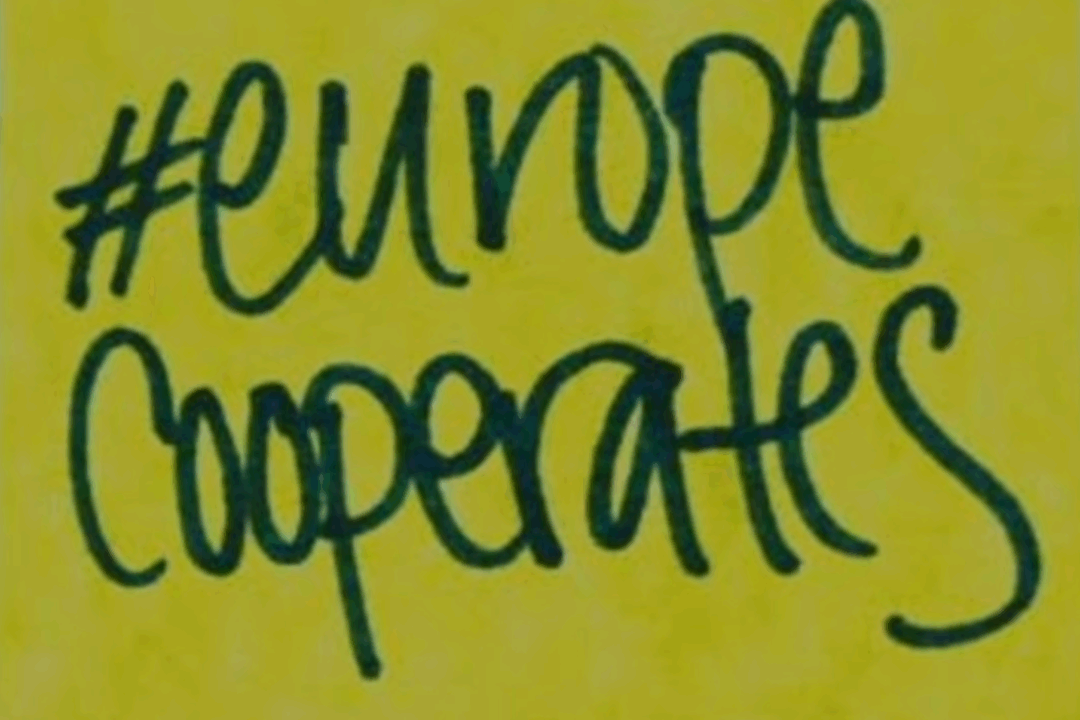 #europe
cooperates